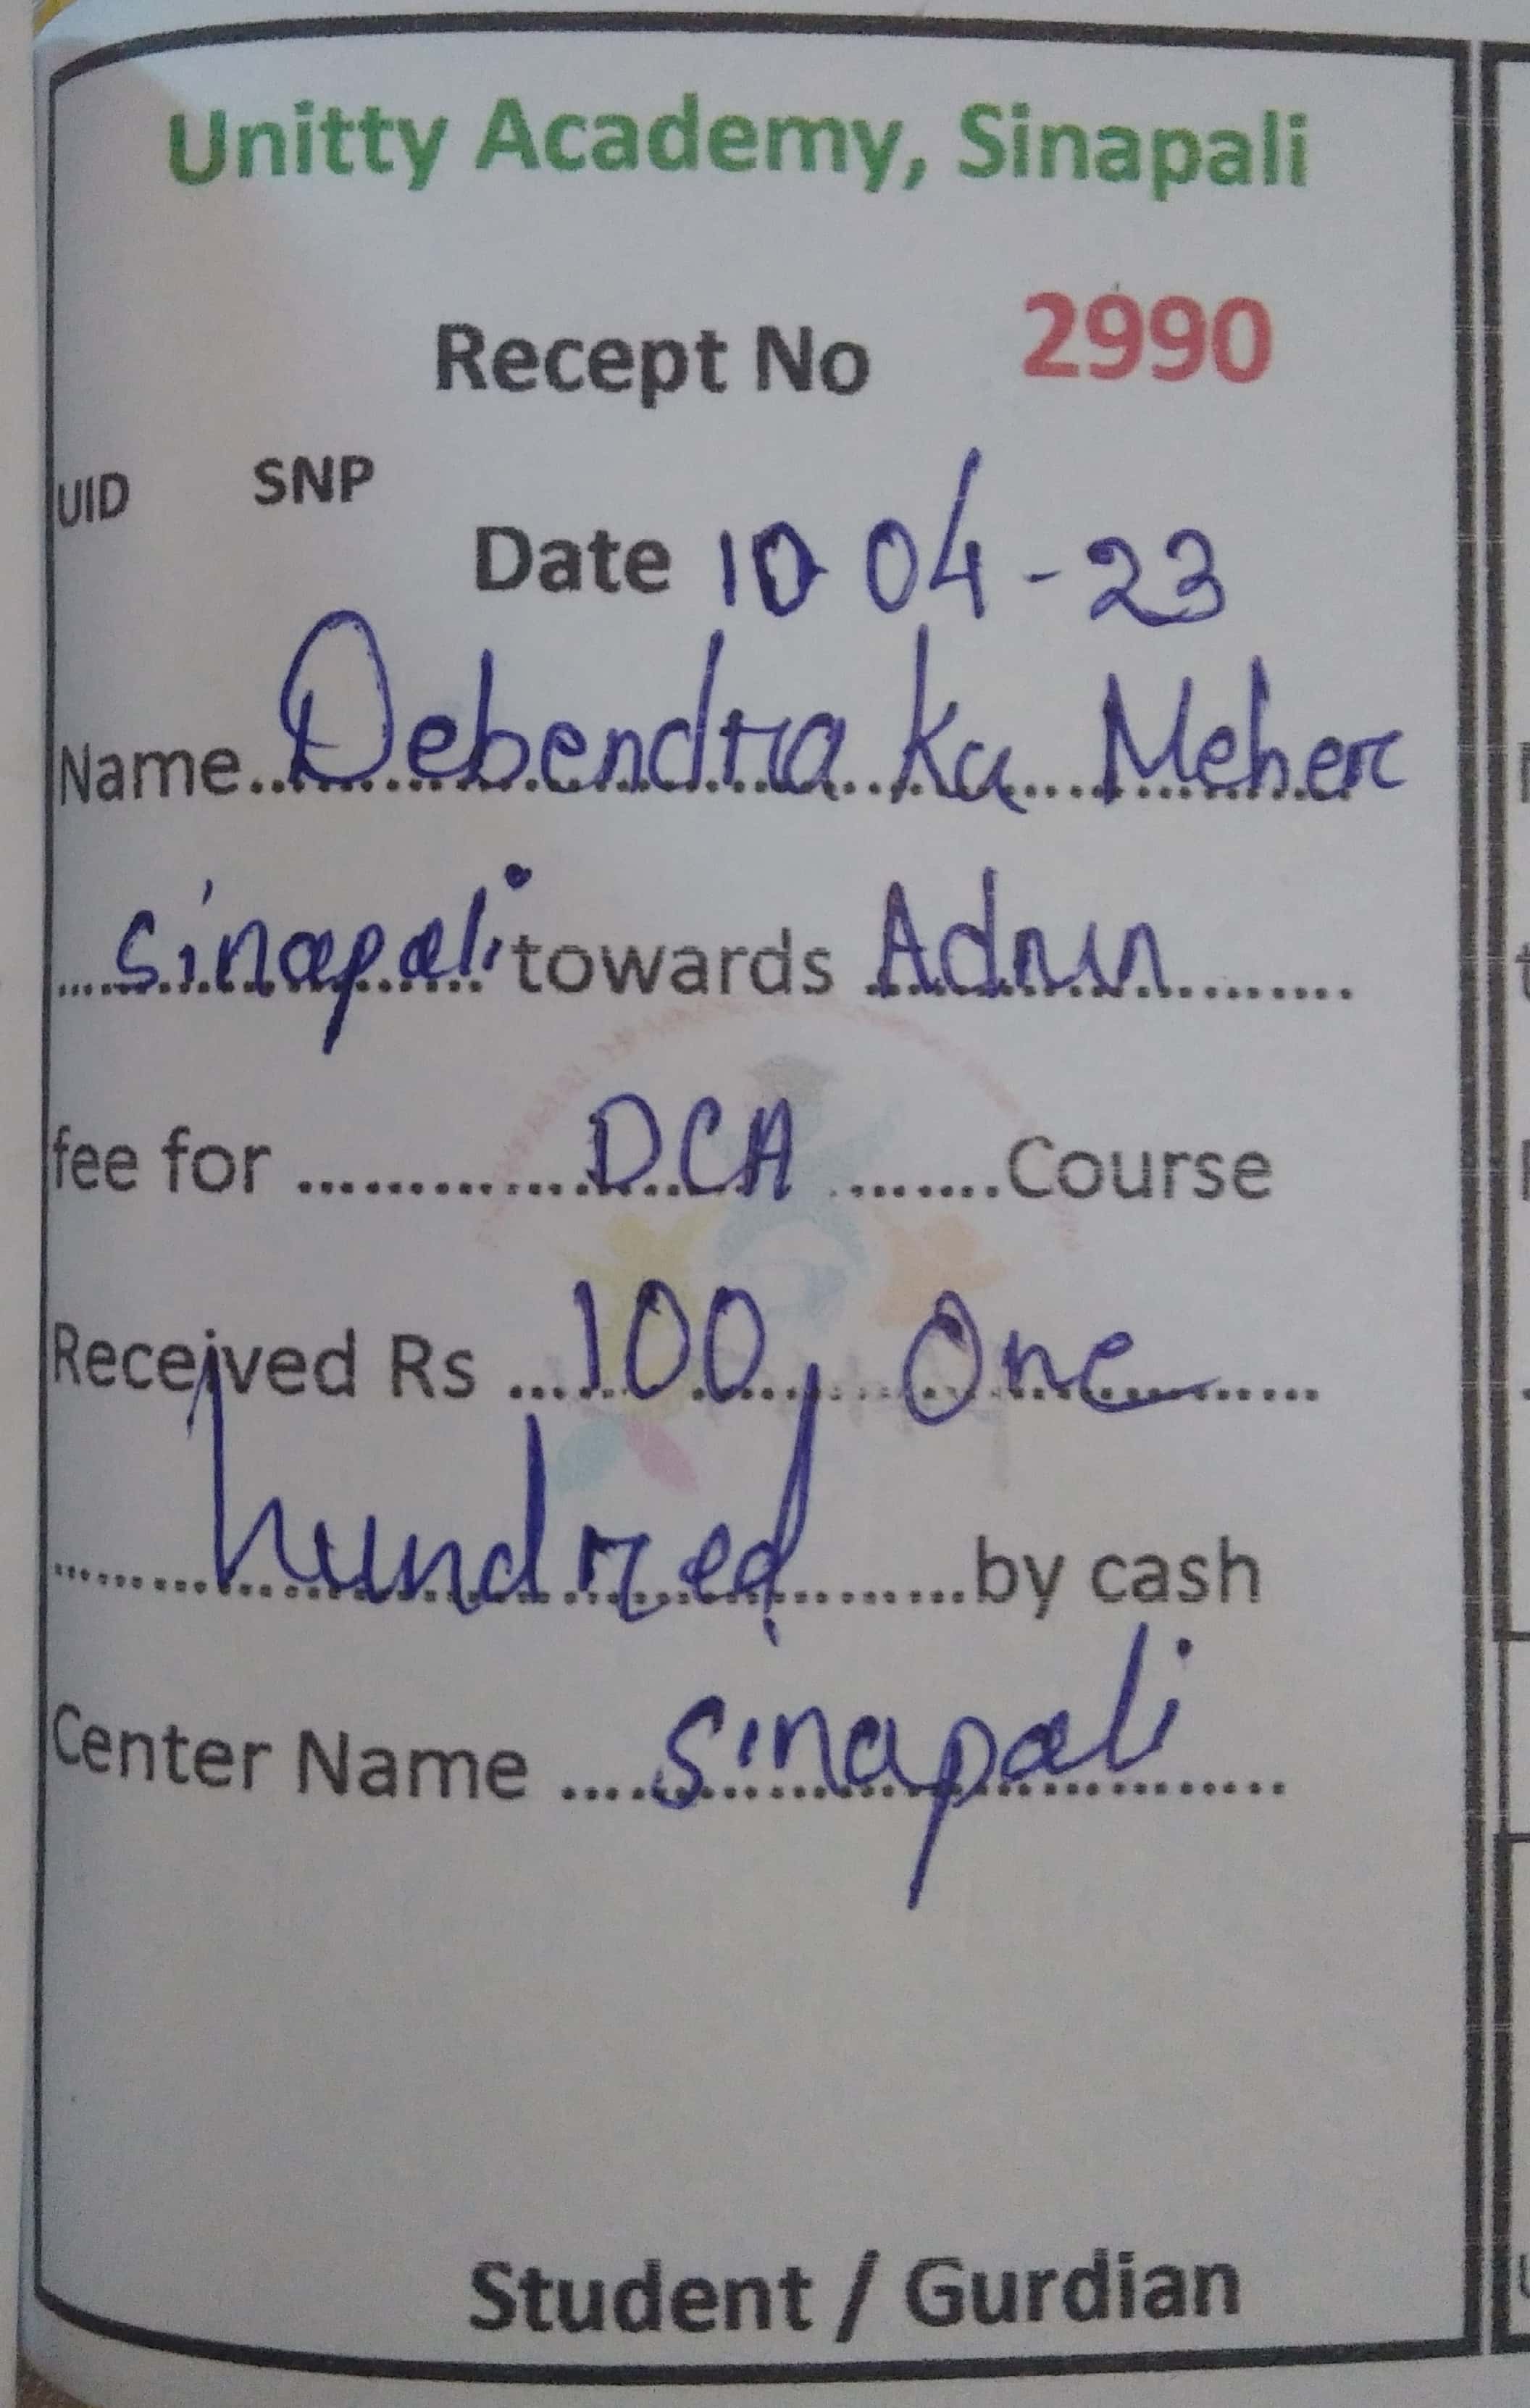 Unitty Academy, Sinapali
Recept No 2990
UID SNP
Date 10 04-23
Name....Debendra Ku Meher
....Sinapali towards Admn........
fee for ............DCA ........Course
Received Rs ....100, One......
........hundred........by cash
Center Name ....Sinapali....
Student / Gurdian